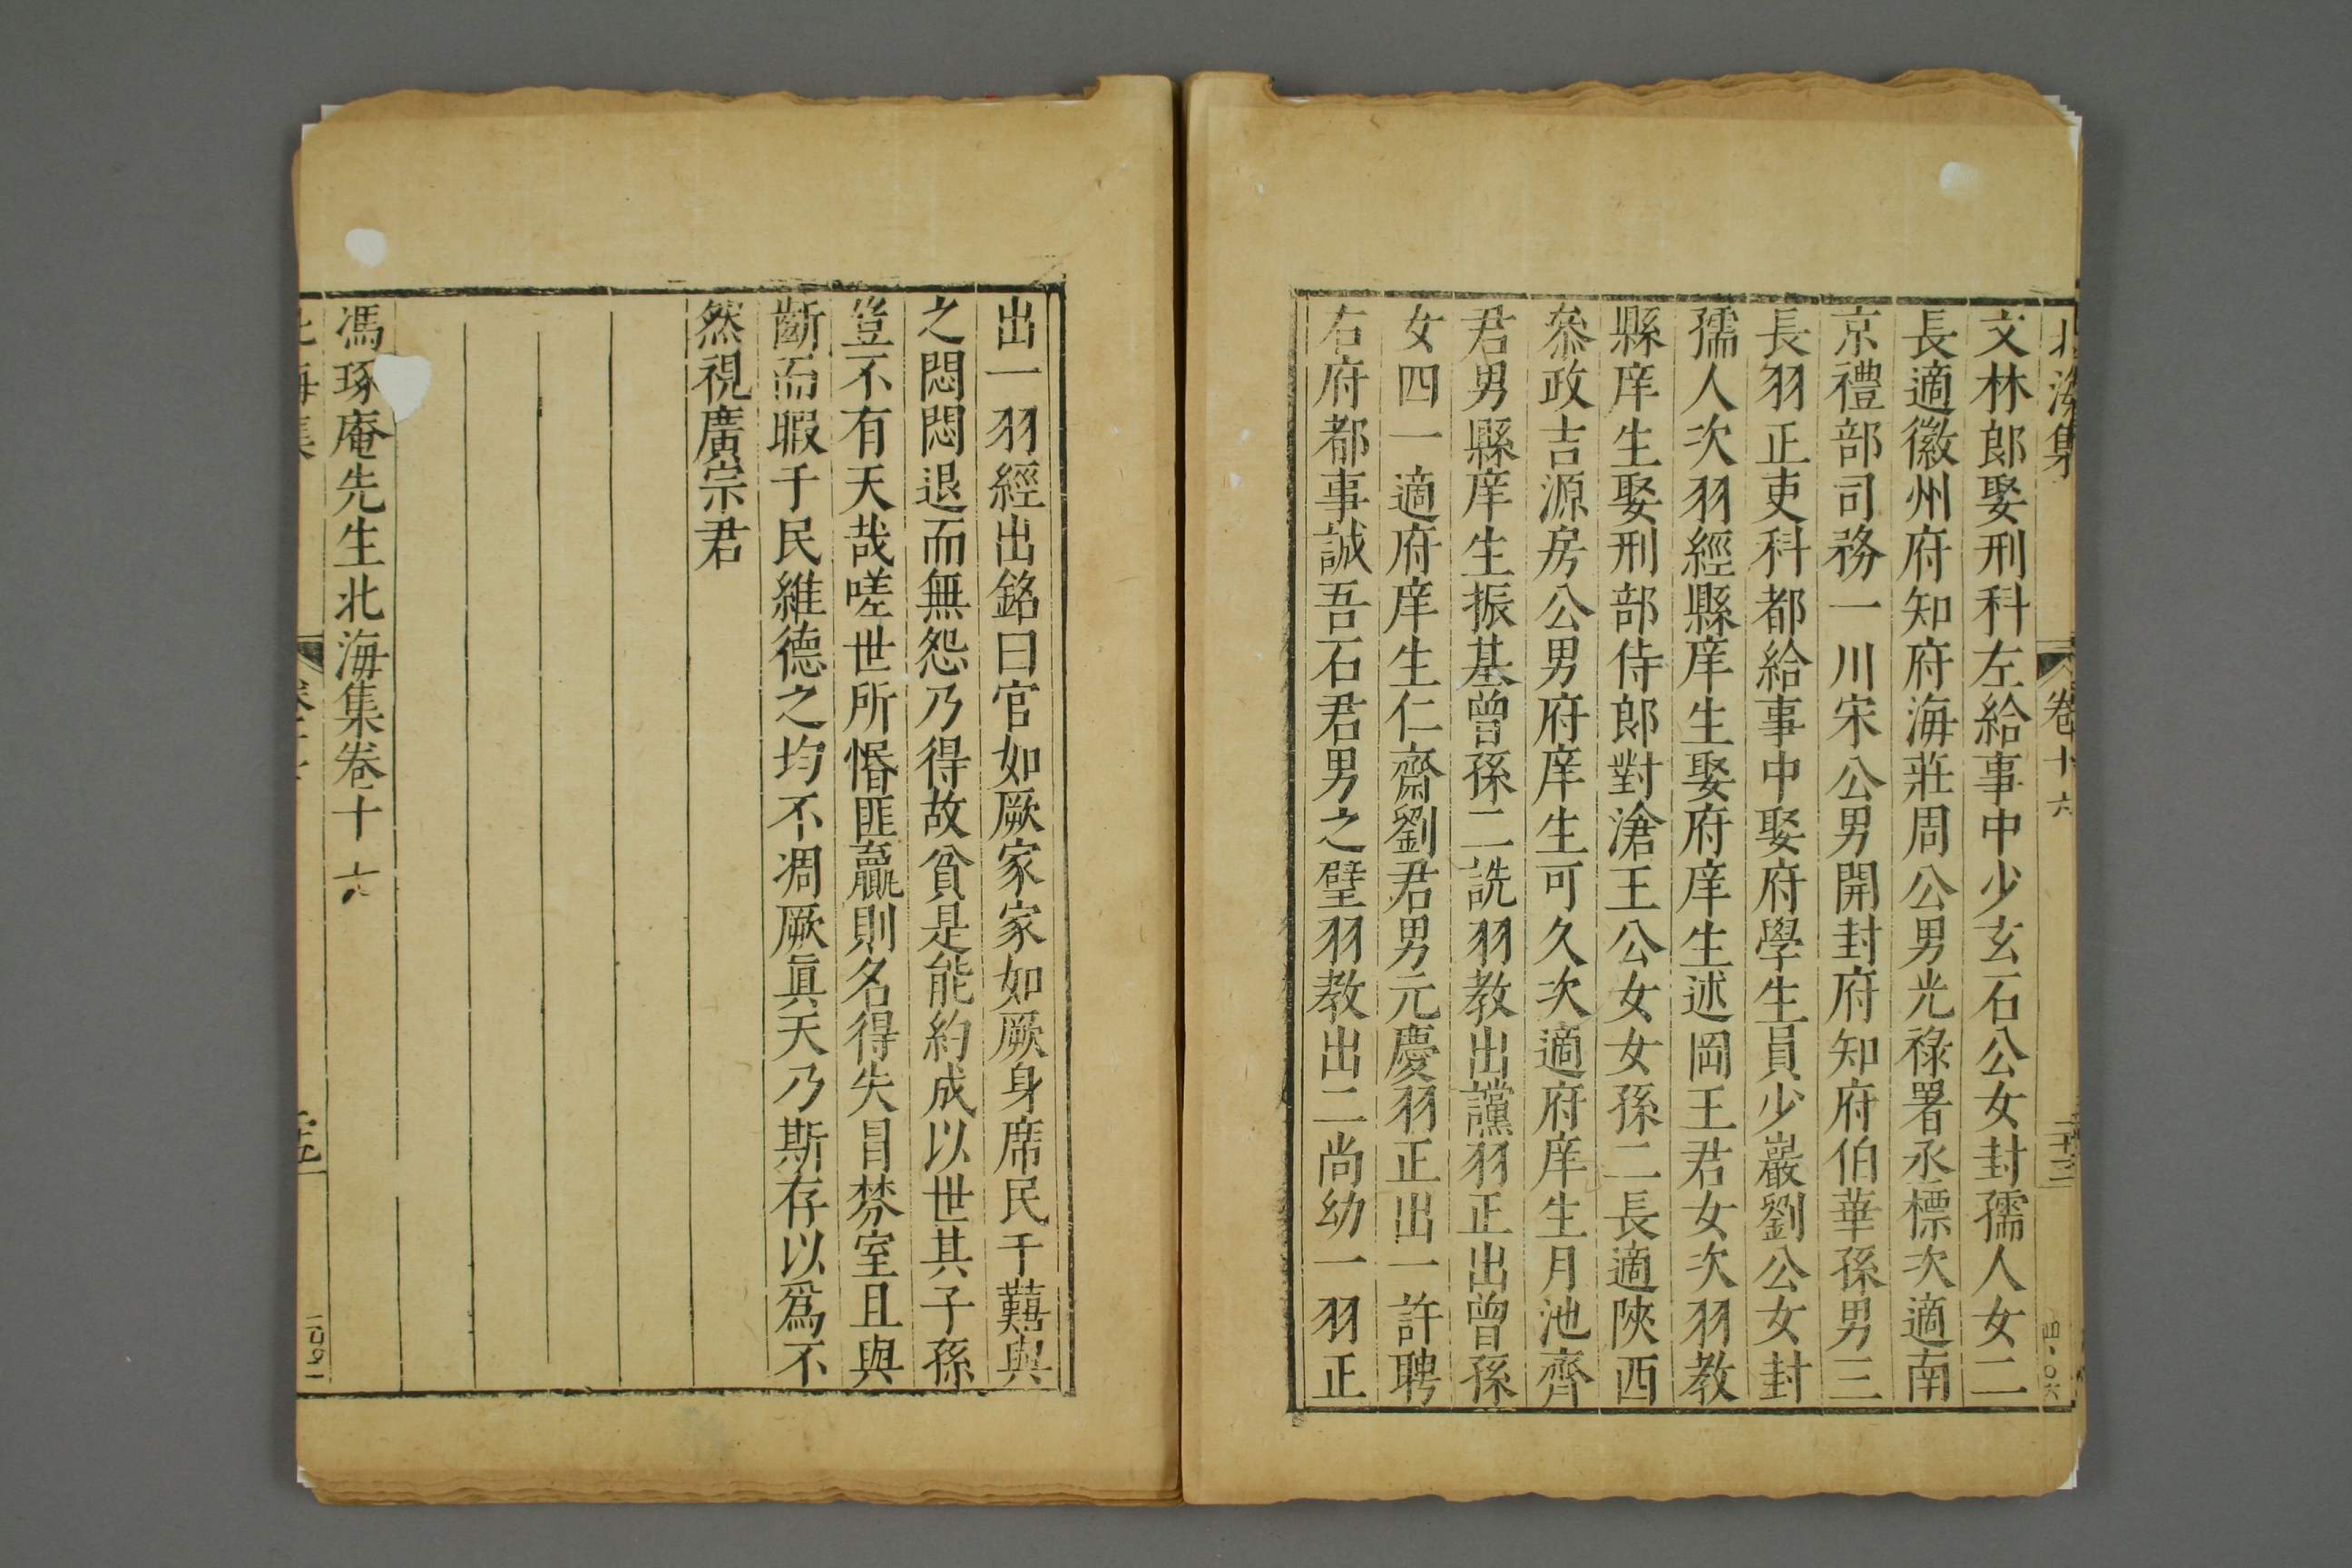 北海集 卷十六 二十三 四〇六
文林郎娶刑科左給事中少玄石公女封孺人女二
長適徽州府知府海莊周公男光祿署丞標次適南
京禮部司務一川宋公男開封府知府伯華孫男三
長羽正吏科都給事中娶府學生員少巖劉公女封
孺人次羽經縣庠生娶府庠生述岡王君女次羽教
縣庠生娶刑部侍郎對滄王公女女孫二長適陝西
叅政吉源房公男府庠生可久次適府庠生月池齊
君男縣庠生振基曾孫二詵羽教出讜羽正出曾孫
女四一適府庠生仁齋劉君男元慶羽正出一許聘
右府都事誠吾石君男之壁羽教出二尚幼一羽正
出一羽經出銘曰官如厥家家如厥身席民于囏與
之悶悶退而無怨乃得故貧是能約成以世其子孫
豈不有天哉嗟世所惛匪贏則名得失目棼室且與
齗而暇于民維德之均不凋厥眞天乃斯存以爲不
然視廣宗君
馮琢庵先生北海集卷十六